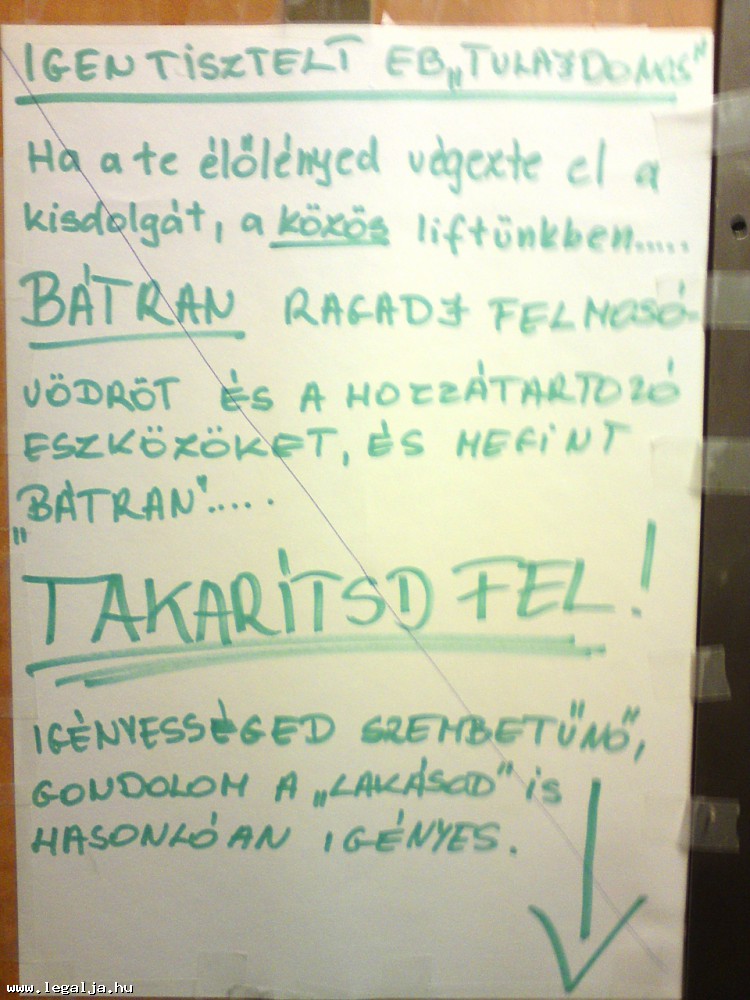 IGEN TISZTELT EB„TULAJDONOS"
Ha a te élőlényed végezte el a
kisdolgát, a közös liftünkben.....
BÁTRAN RAGADJ FELMOSÓ-
VÖDRÖT ÉS A HOZZÁTARTOZÓ
ESZKÖZÖKET, ÉS MEGINT
„BÁTRAN".....
TAKARÍTSD FEL!
IGÉNYESSÉGED SZEMBETŰNŐ,
GONDOLOM A „LAKÁSOD" IS
HASONLÓAN IGÉNYES.
www.legalja.hu